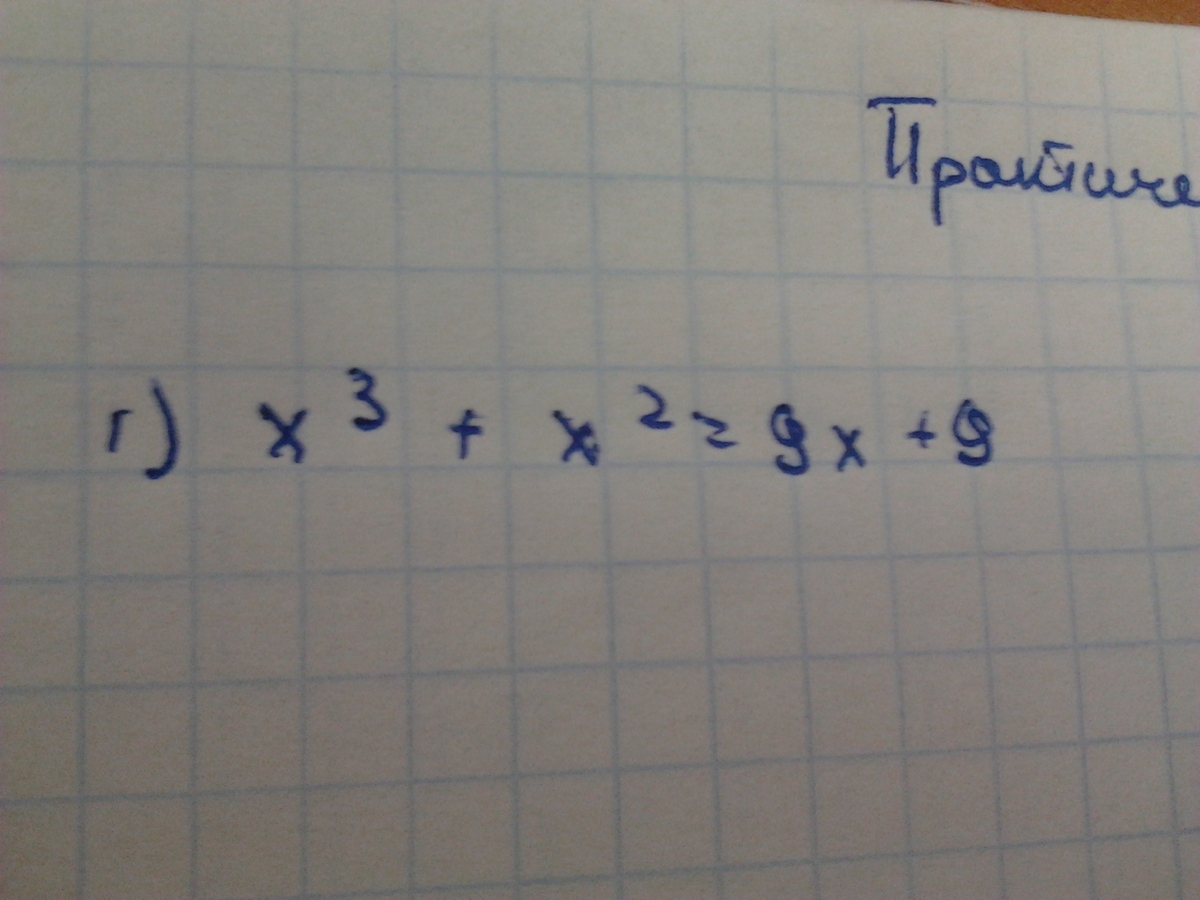 Практиче
г) x³ + x² = 9x + 9